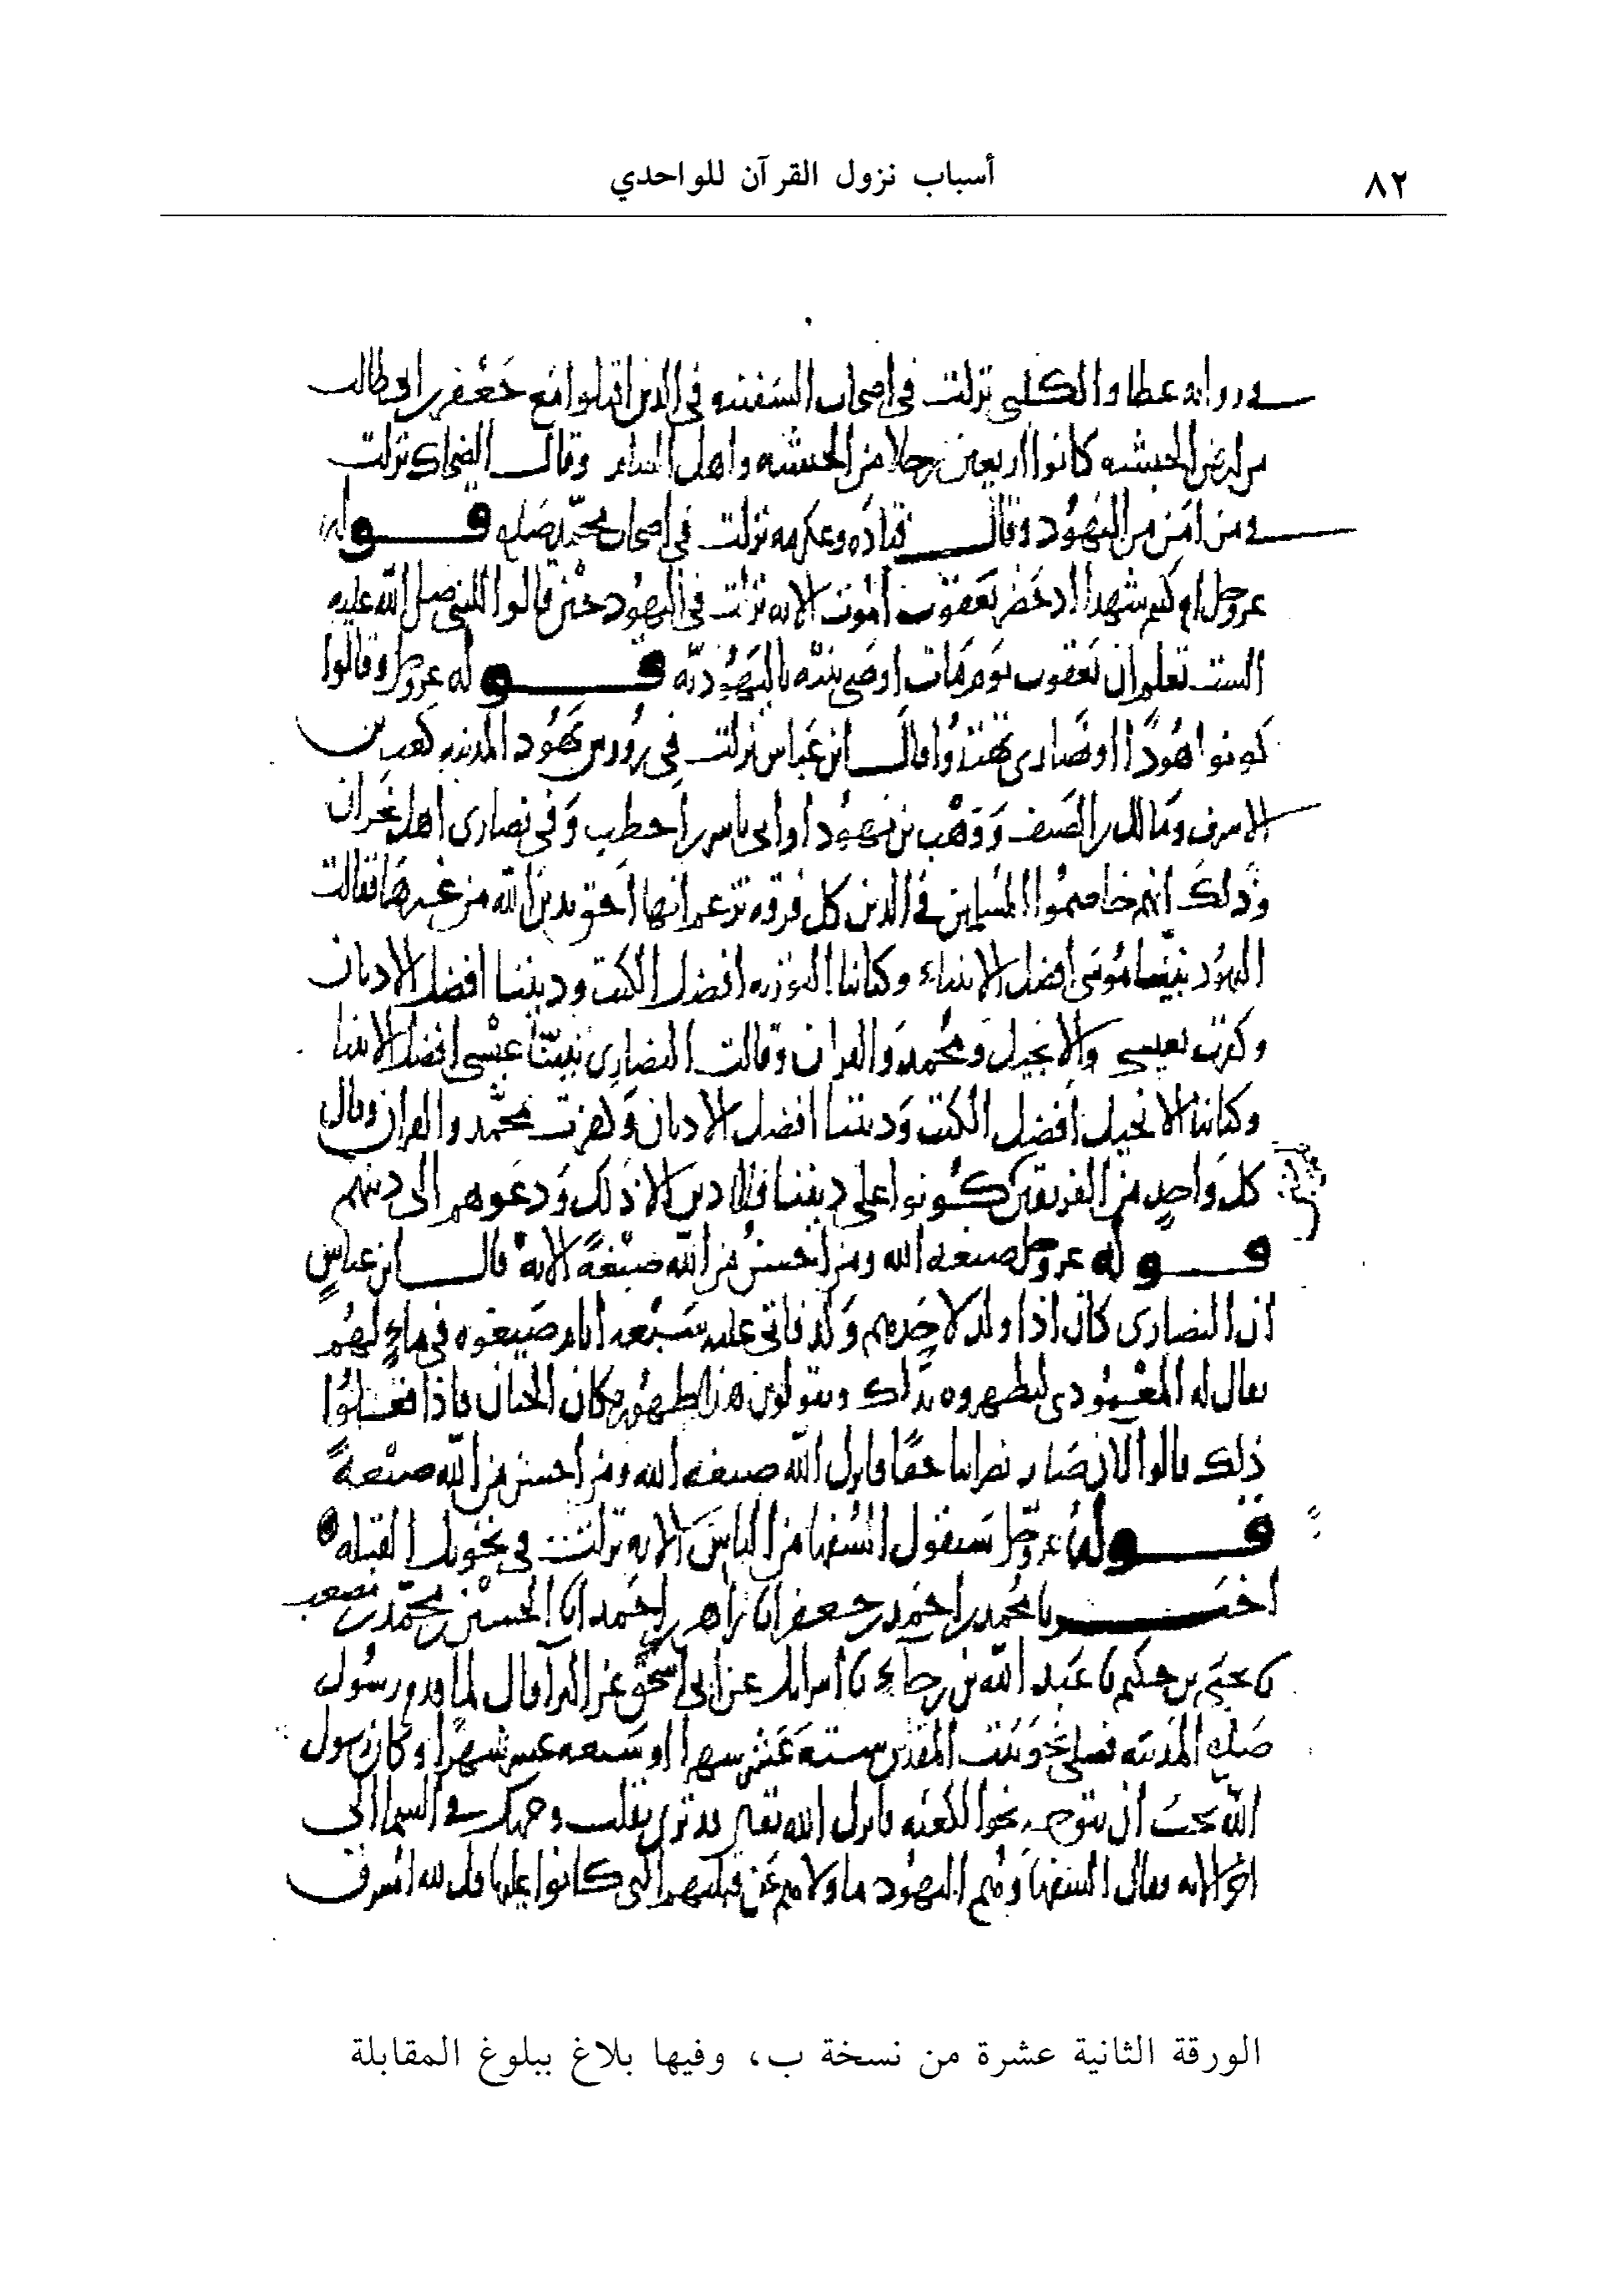 ٨٢
أسباب نزول القرآن للواحدي
في رواية عطا والكلبي نزلت في اصحاب السفينه في الذين اقبلوا مع جعفر بن ابي طالب
من ارض الحبشه كانوا اربعين رجلا من الحبشه واهل الشام وقال الضحاك نزلت
في من امن من اليهود وقال قتاده وعكرمه نزلت في اصحاب محمد صلع قوله
عز وجل ام كنتم شهدا اذ حضر يعقوب الموت الايه نزلت في اليهود حين قالوا للنبي صلى الله عليه
الست تعلم ان يعقوب يوم مات اوصى بنيه باليهوديه قوله عز وجل وقالوا
كونوا هودًا او نصارى تهتدوا قال ابن عباس نزلت في رووس يهود المدينه كعب بن
الاشرف ومالك بن الصيف ووهب بن يهودا وابي ياسر بن احطب وفي نصارى اهل نجران
وذلك انهم خاصموا المسلمين في الدين كل فرقه تزعم انها احق بدين الله من غيرها فقالت
اليهود نبينا موسى افضل الانبياء وكتابنا التوريه افضل الكتب وديننا افضل الاديان
وكفرت بعيسى والانجيل ومحمد والقران وقالت النصارى نبينا عيسى افضل الانبيا
وكتابنا الانجيل افضل الكتب وديننا افضل الاديان وكفرت بمحمد والقران وقال
كل واحد من الفريقين كونوا على ديننا فلا دين الا ذلك ودعوهم الى دينهم
قوله عز وجل صبغه الله ومن احسن من الله صبغةً الايه قال ابن عباسٍ
ان النصارى كان اذا ولد لاحدهم ولد فاتى عليه سبعه ايام صبغوه في ماءٍ لهم
يقال له المعمودى ليطهروه بذلك ويقولون هذا طهور مكان الختان فاذا فعلوا
ذلك قالوا الان صار نصرانيا حقًا فانزل الله صبغه الله ومن احسن من الله صبغةً
قوله عز وجل سيقول السفها من الناس الايه نزلت في تحويل القبله
اخبرنا محمد بن احمد بن جعفر انا زاهر بن احمد انا الحسين بن محمد بن مصعب
نا يحيى بن حكيم نا عبد الله بن رجاء نا اسرايل عن ابي اسحق عن البرا قال لما قدم رسول
صلع المدينه فصلى نحو بيت المقدس سته عشر شهرا او سبعه عشر شهرا وكان رسول
الله يحب ان يتوجه نحو الكعبه فانزل الله تعلى قد نرى تقلب وجهك في السما الى
اخر الايه فقال السفها وهم اليهود ما ولاهم عن قبلتهم التي كانوا عليها قل لله المشرق
الورقة الثانية عشرة من نسخة ب، وفيها بلاغ ببلوغ المقابلة